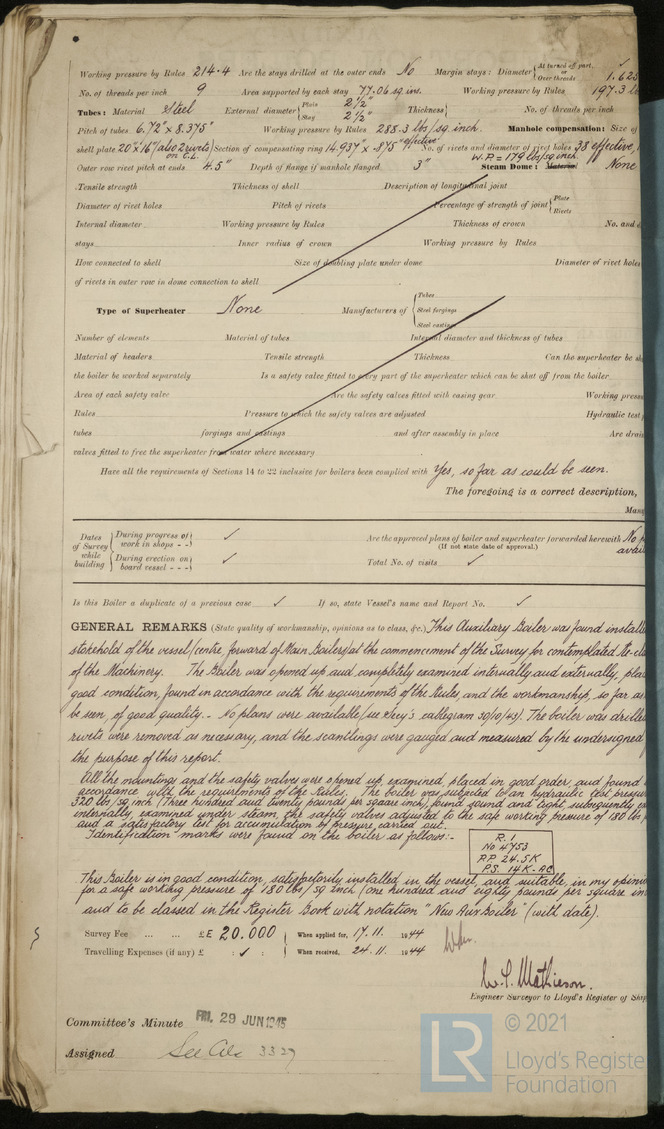 Working pressure by Rules 214.4 Are the stays drilled at the outer ends No Margin stays: Diameter { At turned off part, or Over threads 1.625
No. of threads per inch 9 Area supported by each stay 77.06 sq.ins. Working pressure by Rules 197.3 lb
Tubes: Material Steel External diameter { Plain 2½" Stay 2½" Thickness { No. of threads per inch
Pitch of tubes 6.72" x 8.375" Working pressure by Rules 288.3 lbs/sq.inch. Manhole compensation: Size of
shell plate 20"x16" (also 2 rivets on C.L.) Section of compensating ring 14.937" x .875" effective No. of rivets and diameter of rivet holes 38 effective, 1
Outer row rivet pitch at ends 4.5" Depth of flange if manhole flanged 3" W.P. = 179 lbs/sq.inch Steam Dome: Material None
Tensile strength Thickness of shell Description of longitudinal joint
Diameter of rivet holes Pitch of rivets Percentage of strength of joint { Plate Rivets
Internal diameter Working pressure by Rules Thickness of crown No. and d
stays Inner radius of crown Working pressure by Rules
How connected to shell Size of doubling plate under dome Diameter of rivet holes
of rivets in outer row in dome connection to shell
Type of Superheater None Manufacturers of { Tubes Steel forgings Steel castings
Number of elements Material of tubes Internal diameter and thickness of tubes
Material of headers Tensile strength Thickness Can the superheater be sh
the boiler be worked separately Is a safety valve fitted to every part of the superheater which can be shut off from the boiler
Area of each safety valve Are the safety valves fitted with easing gear Working press
Rules Pressure to which the safety valves are adjusted Hydraulic test p
tubes forgings and castings and after assembly in place Are drai
valves fitted to free the superheater from water where necessary
Have all the requirements of Sections 14 to 22 inclusive for boilers been complied with Yes, so far as could be seen.
The foregoing is a correct description,
Manu
Dates of Survey while building { During progress of work in shops - - ✓ Are the approved plans of boiler and superheater forwarded herewith No p
(If not state date of approval.) avail
During erection on board vessel - - - ✓ Total No. of visits ✓
Is this Boiler a duplicate of a previous case ✓ If so, state Vessel's name and Report No. ✓
GENERAL REMARKS (State quality of workmanship, opinions as to class, &c.) This Auxiliary Boiler was found install
stokehold of the vessel (centre forward of Main Boilers) at the commencement of the Survey for contemplated Re-cla
of the Machinery. The Boiler was opened up and completely examined internally and externally, pla
good condition, found in accordance with the requirements of the Rules, and the workmanship, so far as
be seen, of good quality. - No plans were available (see Grey's cablegram 30/10/43). The boiler was drille
rivets were removed as necessary, and the scantlings were gauged and measured by the undersigned
the purpose of this report.
All the mountings and the safety valves were opened up, examined, placed in good order, and found
accordance with the requirements of the Rules. The boiler was subjected to an hydraulic test pressur
320 lbs/sq inch (Three hundred and twenty pounds per square inch), found sound and tight, subsequently e
internally, examined under steam, the safety valves adjusted to the safe working pressure of 180 lbs/
and a satisfactory test for accumulation of pressure carried out.
Identification marks were found on the boiler as follows:-
R.1
No 4753
P.P. 24.5K
P.S. 14K-AC
This Boiler is in good condition, satisfactorily installed in the vessel, and suitable, in my opinio
for a safe working pressure of 180 lbs/sq inch (one hundred and eighty pounds per square in
and to be classed in the Register Book with notation "New Aux Boiler" (with date).
Survey Fee ... ... £E 20.000 When applied for, 17.11. 1944
Travelling Expenses (if any) £ : ✓ : When received, 24.11. 1944
W.S. Mathieson.
Engineer Surveyor to Lloyd's Register of Ship
Committee's Minute FRI. 29 JUN 1945
Assigned See Cls 3329
LR © 2021
Lloyd's Registe
Foundation